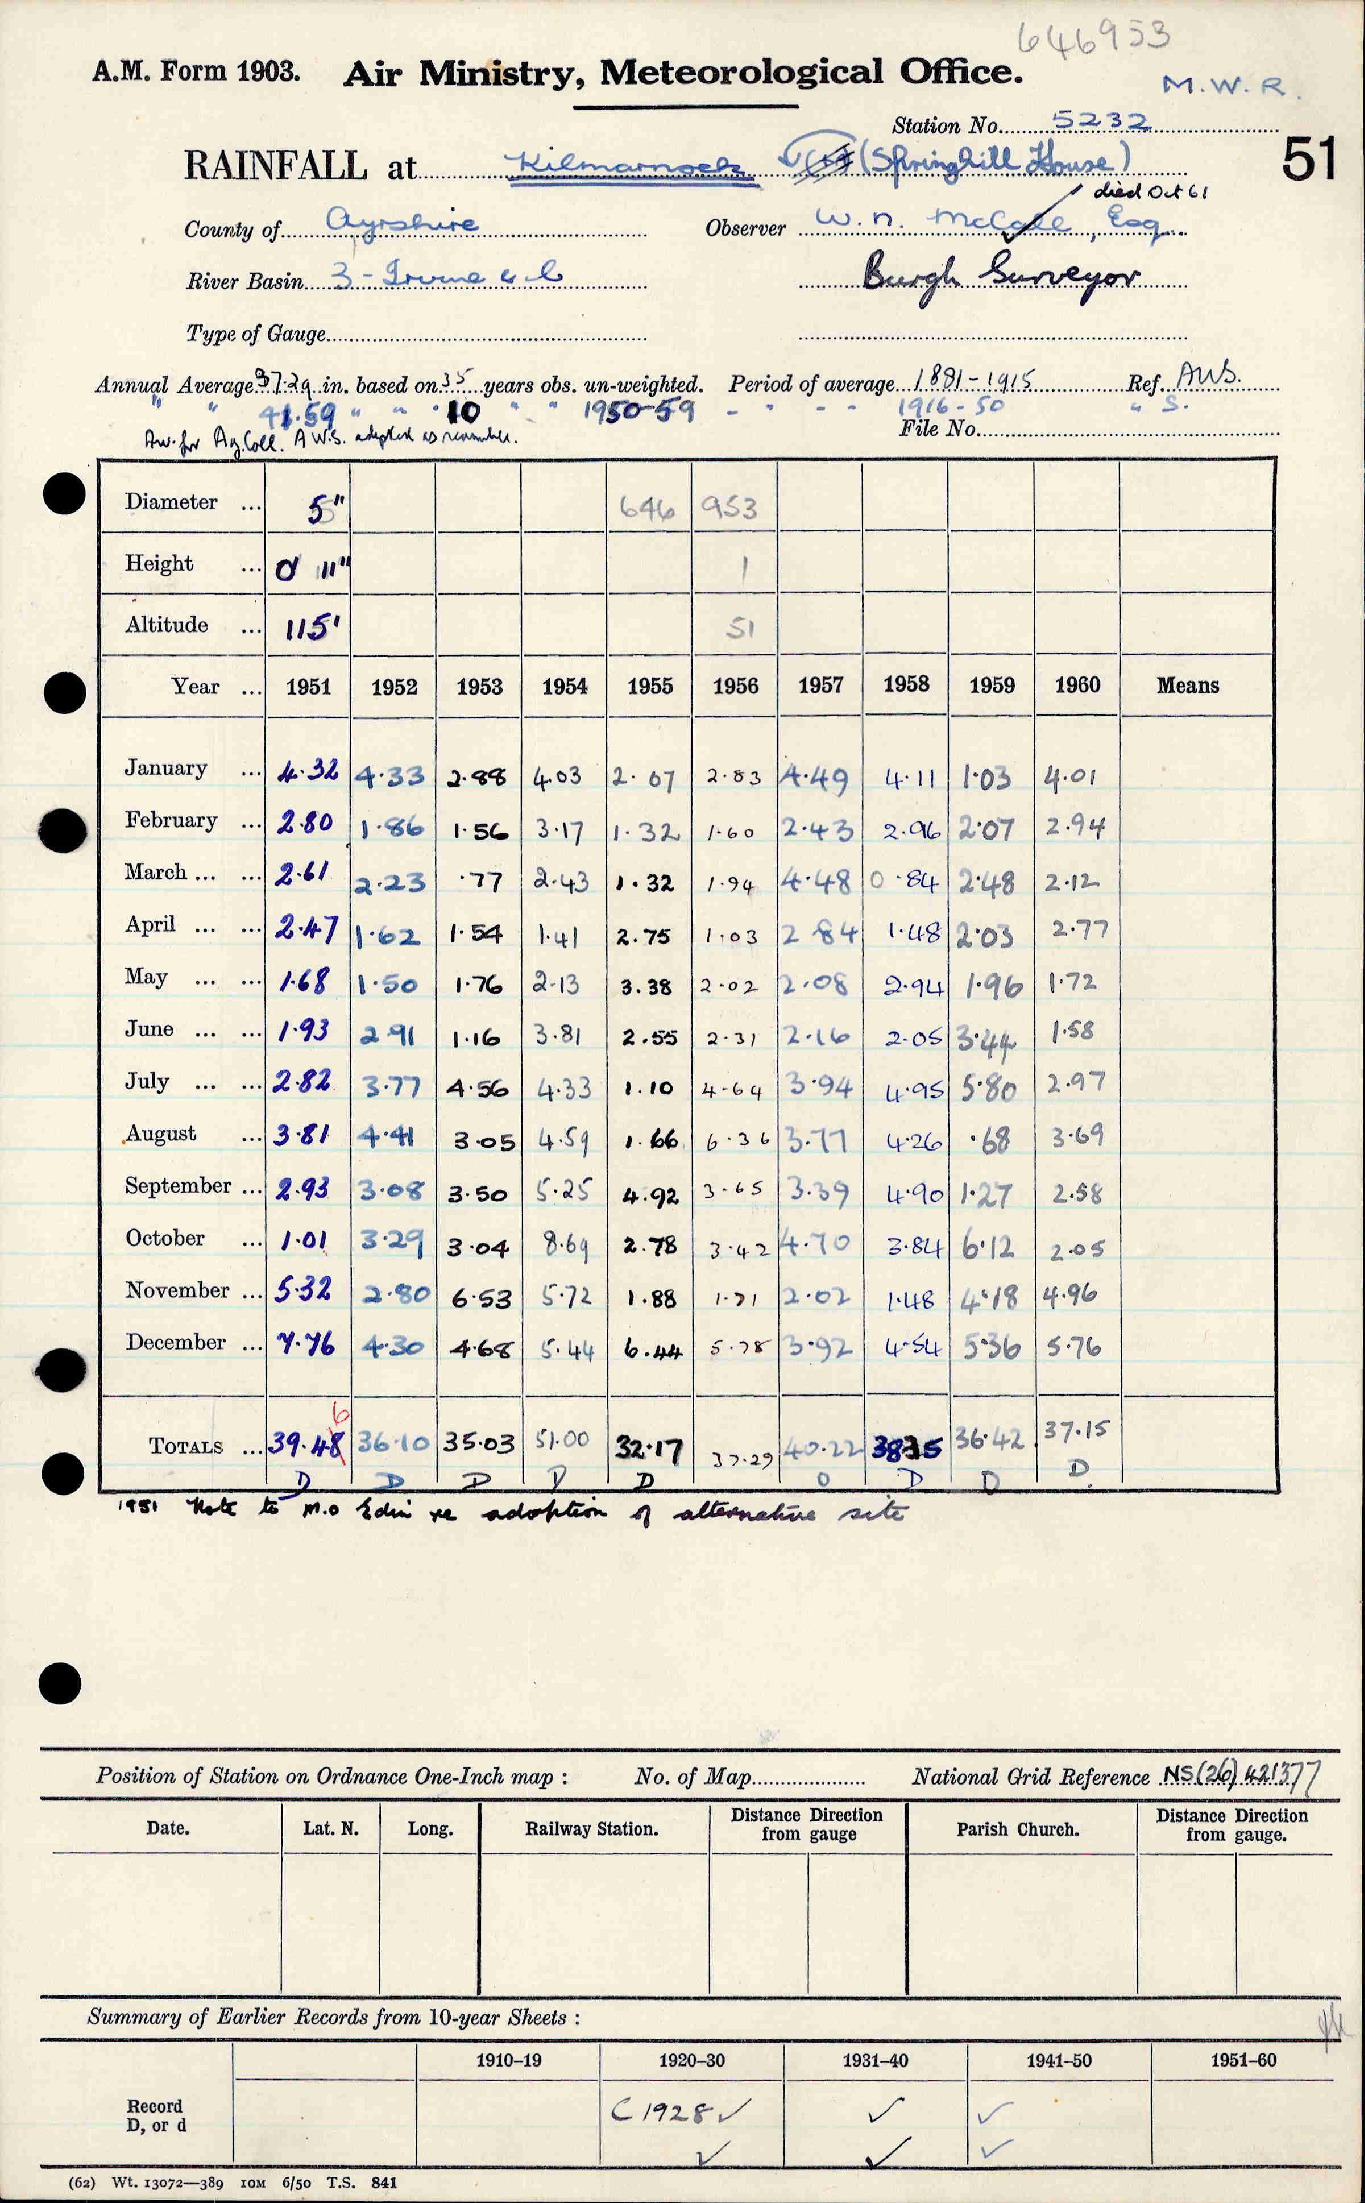 646953
A.M. Form 1903. Air Ministry, Meteorological Office.
M.W.R.
Station No. 5232
51
RAINFALL at Kilmarnock (Springhill House)
died Oct 61
County of Ayrshire Observer W. N. McColl, Esq.
River Basin 3 - Irvine &c Burgh Surveyor
Type of Gauge
Annual Average 37.29 in. based on 35 years obs. un-weighted. Period of average 1881-1915 Ref. AWS.
" " 41.59 " " 10 " " 1950-59 - " - - 1916-50 " S.
Av. for Ag. Coll. A.W.S. adopted File No.
Diameter ... 5" 646 953
Height ... 0 11" 1
Altitude ... 115' 51
Year ... 1951 1952 1953 1954 1955 1956 1957 1958 1959 1960 Means
January ... 4.32 4.33 2.88 4.03 2.07 2.83 4.49 4.11 1.03 4.01
February ... 2.80 1.86 1.56 3.17 1.32 1.60 2.43 2.96 2.07 2.94
March ... ... 2.61 2.23 .77 2.43 1.32 1.94 4.48 0.84 2.48 2.12
April ... ... 2.47 1.62 1.54 1.41 2.75 1.03 2 84 1.48 2.03 2.77
May ... ... 1.68 1.50 1.76 2.13 3.38 2.02 2.08 2.94 1.96 1.72
June ... ... 1.93 2 91 1.16 3.81 2.55 2.31 2.16 2.05 3.44 1.58
July ... ... 2.82 3.77 4.56 4.33 1.10 4.64 3.94 4.95 5.80 2.97
August ... 3.81 4.41 3.05 4.59 1.66 6.36 3.77 4.26 .68 3.69
September ... 2.93 3.08 3.50 5.25 4.92 3.65 3.39 4.90 1.27 2.58
October ... 1.01 3.29 3.04 8.69 2.78 3.42 4.70 3.84 6.12 2.05
November ... 5.32 2.80 6.53 5.72 1.88 1.71 2.02 1.48 4.18 4.96
December ... 7.76 4.30 4.68 5.44 6.44 5.78 3.92 4.54 5.36 5.76
6
TOTALS ... 39.48 36.10 35.03 51.00 32.17 37.29 40.22 38.35 36.42 37.15
D D D D D O D D D
1951 Note to M.O Edin re adoption of alternative site
Position of Station on Ordnance One-Inch map : No. of Map National Grid Reference NS(26)421377
Date. Lat. N. Long. Railway Station. Distance Direction from gauge Parish Church. Distance Direction from gauge.
Summary of Earlier Records from 10-year Sheets :
1910-19 1920-30 1931-40 1941-50 1951-60
Record C 1928 ✓ ✓ ✓
D, or d ✓ ✓ ✓
(62) Wt. 13072—389 10M 6/50 T.S. 841